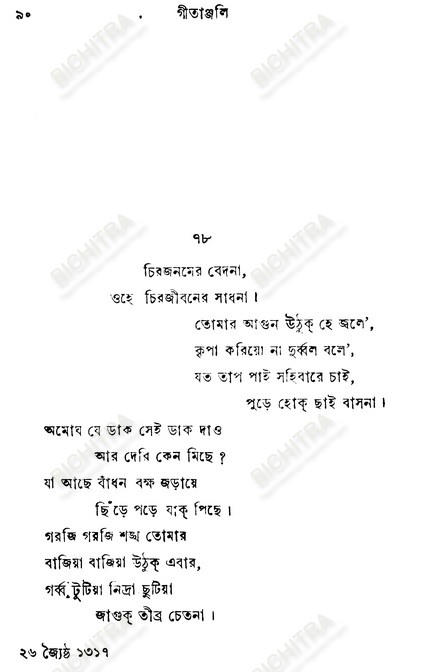 ৯০
গীতাঞ্জলি
৭৮
চিরজনমের বেদনা,
ওহে চিরজীবনের সাধনা।
তোমার আগুন উঠুক্ হে জ্বলে’,
কৃপা করিয়ো না দুর্ব্বল বলে’,
যত তাপ পাই সহিবারে চাই,
পুড়ে হোক্ ছাই বাসনা।
অমোঘ যে ডাক সেই ডাক দাও
আর দেরি কেন মিছে ?
যা আছে বাঁধন বক্ষ জড়ায়ে
ছিঁড়ে পড়ে যাক্ পিছে।
গরজি গরজি শঙ্খ তোমার
বাজিয়া বাজিয়া উঠুক্ এবার,
গর্ব্ব টুটিয়া নিদ্রা ছুটিয়া
জাগুক্ তীব্র চেতনা।
২৬ জ্যৈষ্ঠ ১৩১৭
BICHITRA
BICHITRA
BICHITRA
BICHITRA
BICHITRA
BICHITRA